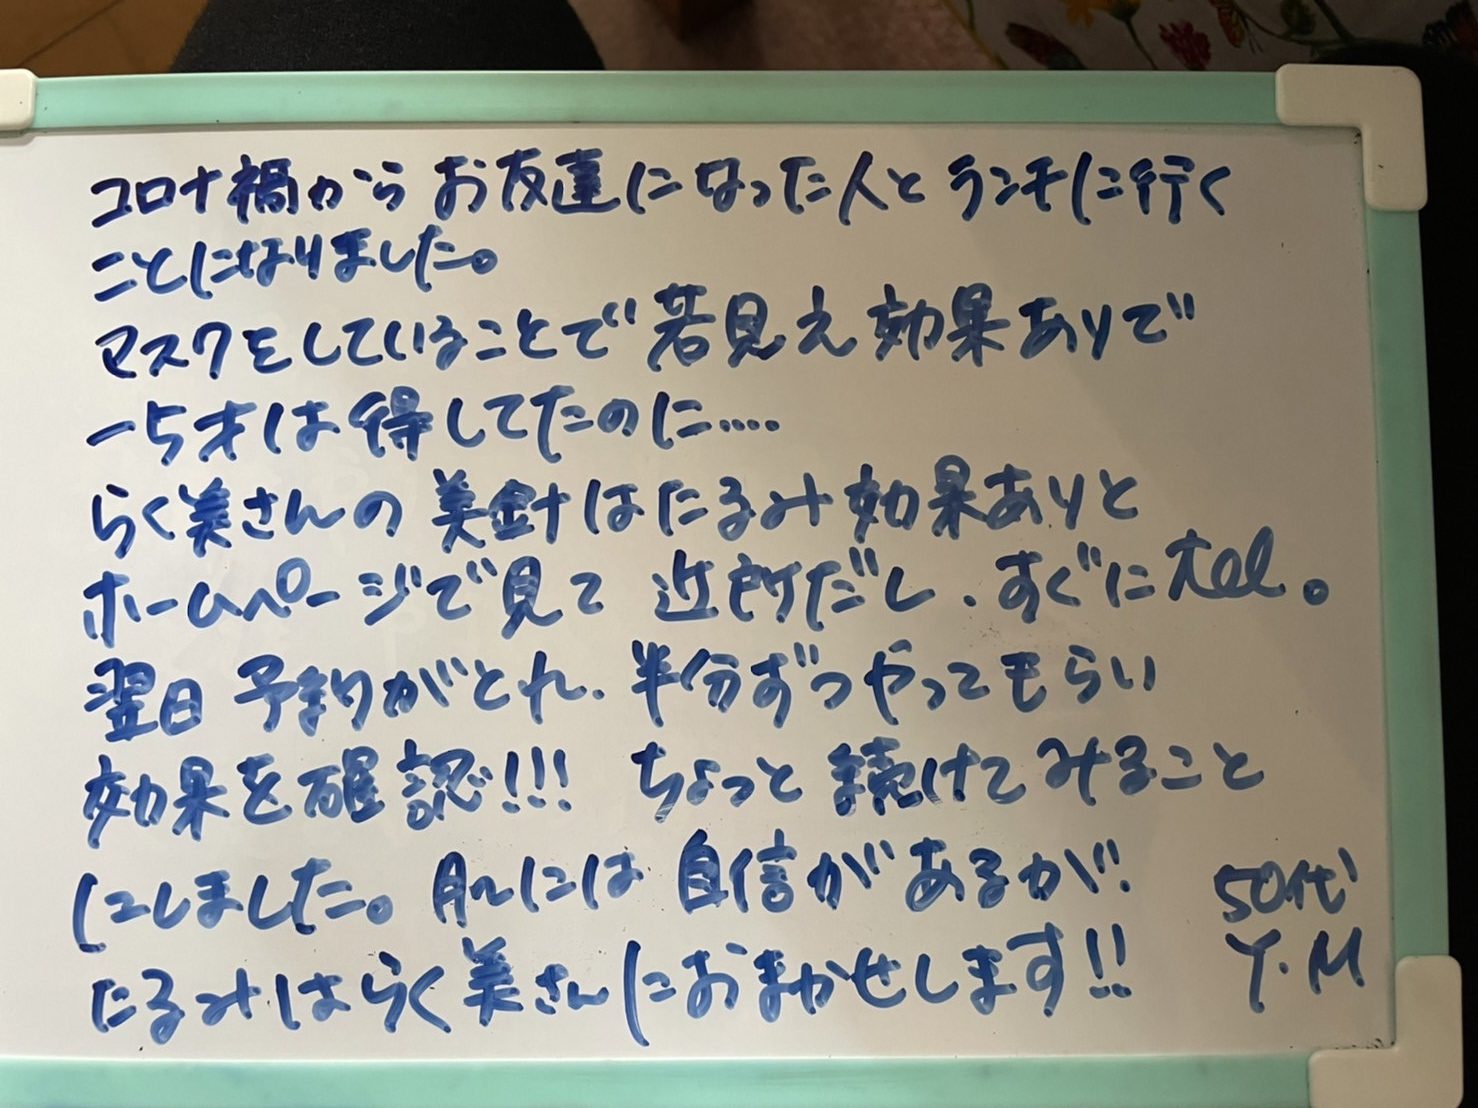 コロナ禍からお友達になった人とランチに行く
ことになりました。
マスクをしていることで若見え効果ありで
-5才は得してたのに....
らく美さんの美針はたるみ効果ありと
ホームページで見て 近所だし、すぐにtel。
翌日 予約がとれ、半分ずつやってもらい
効果を確認!!! ちょっと続けてみること
にしました。肌には自信があるが!
たるみはらく美さんにおまかせします!!
50代
Y.M